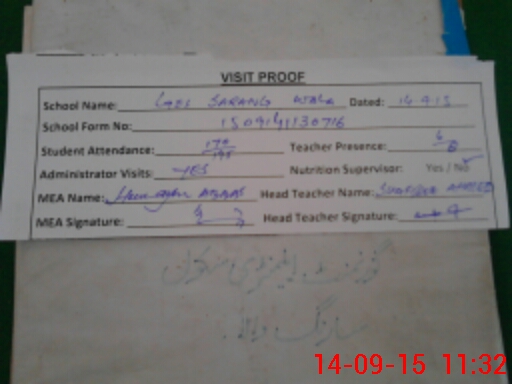 VISIT PROOF
School Name: GGES SARANG WALA Dated: 14.9.15
School Form No: 15091411130716
Student Attendance: Teacher Presence: 6/8
Administrator Visits: YES Nutrition Supervisor: Yes / No
MEA Name: ABBAS Head Teacher Name: AHMED
MEA Signature: Head Teacher Signature:
گورنمنٹ
سارنگ والا
14-09-15 11:32